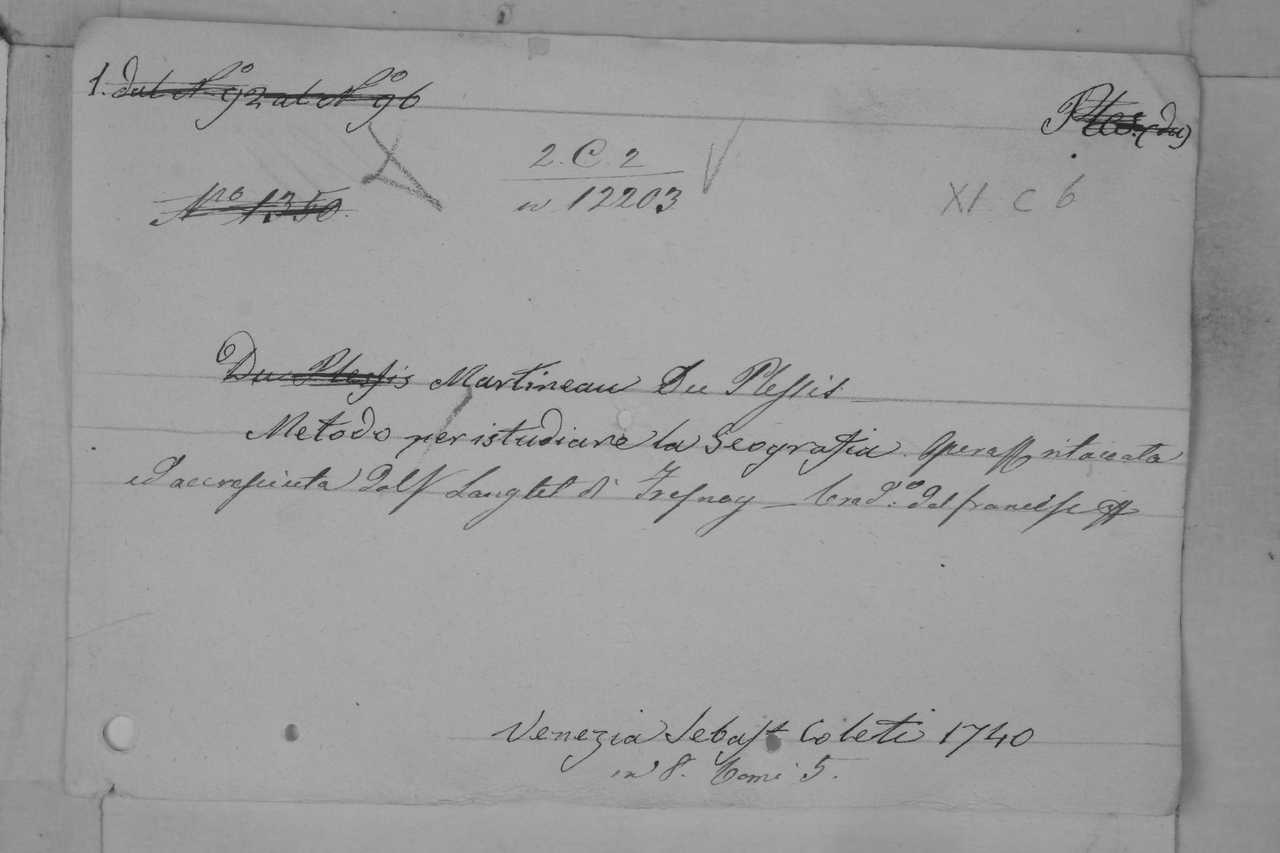 1. dal Nº 92 al Nº 96
Ples. (du)
2. C. 2
Nro 1350.
n 12203
XI C 6
Du Plessis Martineau Du Plessis
Metodo per istudiare la Geografia. Opera ritoccata
ed accresciuta dall' Langlet di Fresnoy _ trad.º dal francese
Venezia Sebast. Coleti 1740
in 8. Tomi 5.